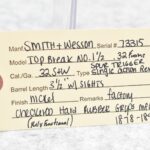 Manf. SMITH + WESSON Serial 73315
Model TOP BREAK NO. 1½ 32 Frame
SPUR TRIGGER
Cal./Ga. 32 S+W Type Single Action Rev
Barrel Length 3½" w/ SIGHTS
Finish Nickel Remarks factory
CHECKERED HARD RUBBER GRIPS
(Fully Functional) 18-8-18